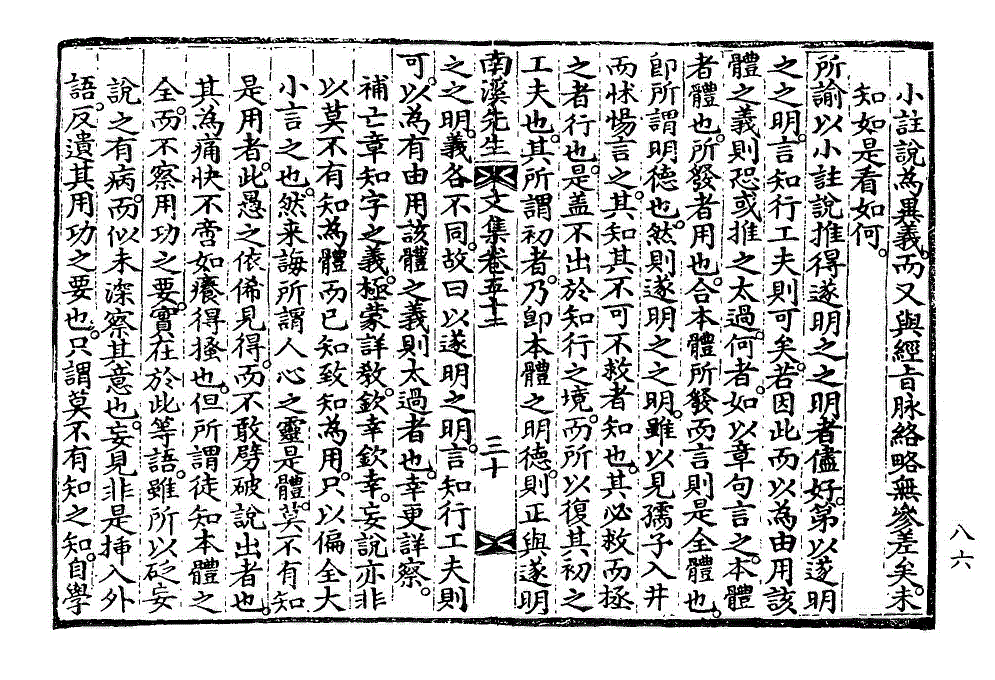 小註說為異義。而又與經旨脉絡略無參差矣。未
知如是看如何。
所諭以小註說推得遂明之之明者儘好。第以遂明
之之明。言知行工夫則可矣。若因此而以為由用該
體之義則恐或推之太過。何者。如以章句言之。本體
者體也。所發者用也。合本體所發而言則是全體也。
卽所謂明德也。然則遂明之之明。雖以見孺子入井
而怵惕言之。其知其不可不救者知也。其必救而拯
之者行也。是盖不出於知行之境。而所以復其初之
工夫也。其所謂初者。乃卽本體之明德。則正與遂明
南溪先生文集卷五十二 三十
之之明。義各不同。故曰以遂明之明。言知行工夫則
可。以為有由用該體之義則太過者也。幸更詳察。
補亡章知字之義。極蒙詳敎。欽幸欽幸。妄說亦非
以莫不有知為體而已知致知為用。只以偏全大
小言之也。然来誨所謂人心之靈是體。莫不有知
是用者。此愚之依俙見得。而不敢劈破說出者也。
其為痛快不啻如癢得搔也。但所謂徒知本體之
全。而不察用功之要。實在於此等語。雖所以砭妄
說之有病。而似未深察其意也。妄見非是揷入外
語。反遺其用功之要也。只謂莫不有知之知。自學
八六